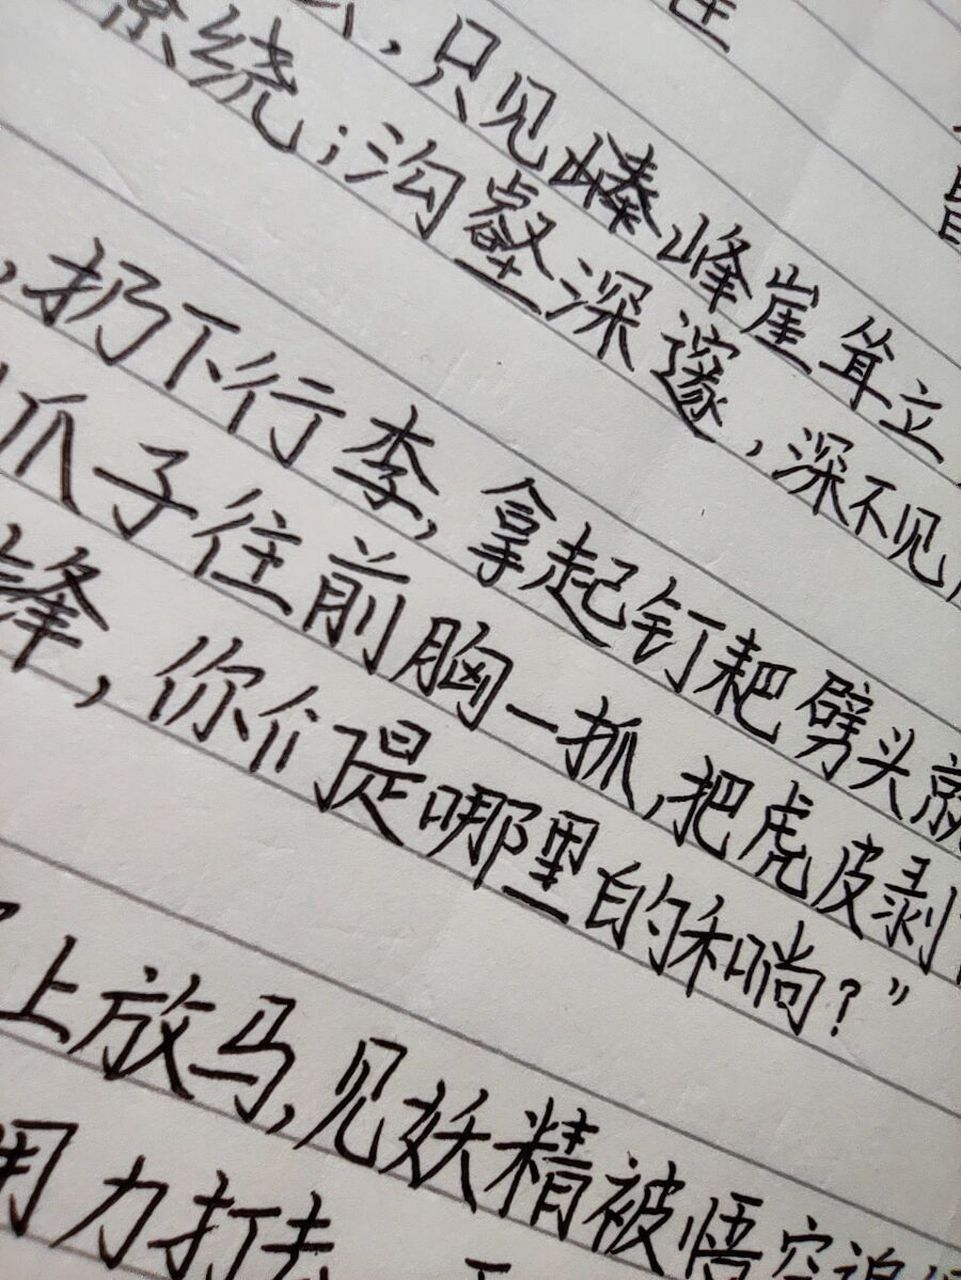 ，只见嶙峰崖耸立
绕；沟壑深邃，深不见
，扔下行李，拿起钉耙劈头就
爪子往前胸一抓，把虎皮剥
锋，你们是哪里的和尚？”
上放马，见妖精被悟空追
用力打去